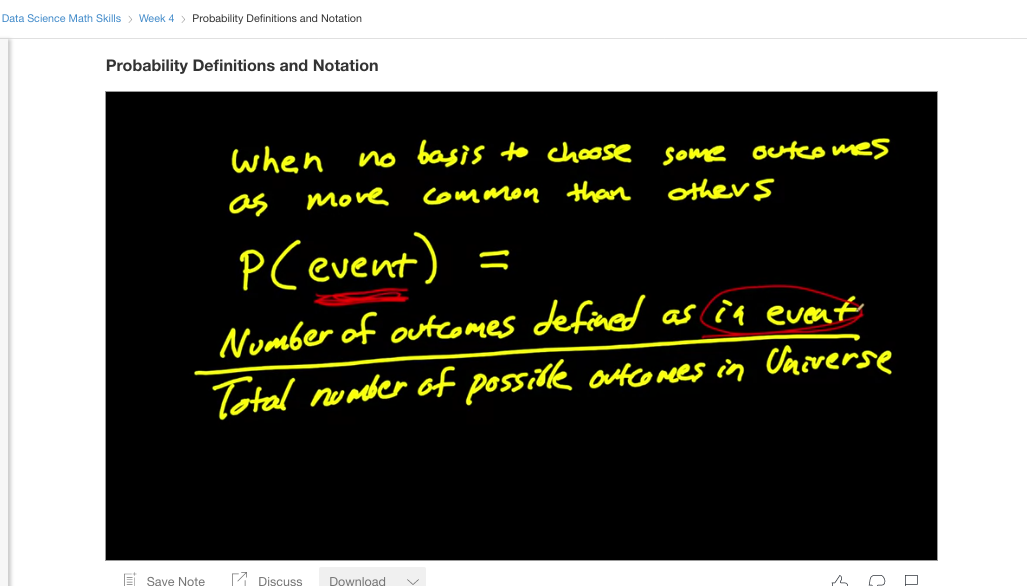 Data Science Math Skills > Week 4 > Probability Definitions and Notation
Probability Definitions and Notation
when no basis to choose some outcomes
as more common than others
P(event) =
Number of outcomes defined as in event
Total number of possible outcomes in Universe
Save Note Discuss Download